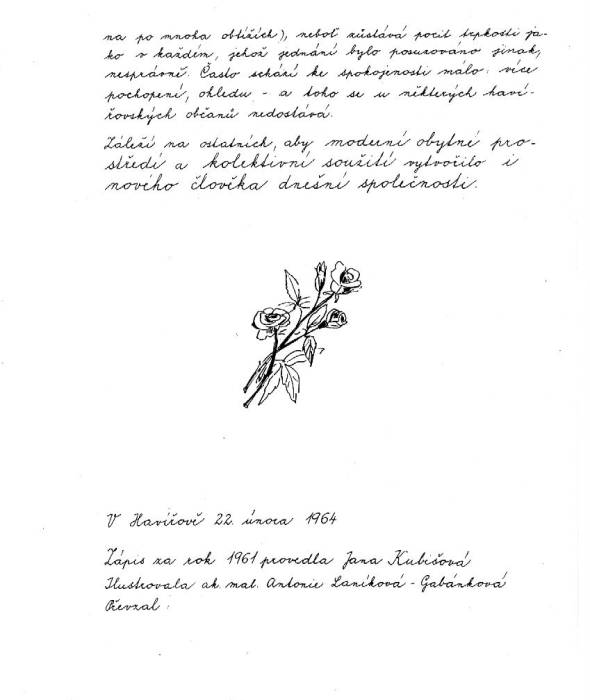 na po mnoha obtížích), neboť zůstává pocit trpkosti ja-
ko v každém, jehož jednání bylo posuzováno jinak,
nesprávně. Často schází ke spokojenosti málo: více
pochopení, ohledu - a toho se u některých haví-
řovských občanů nedostává.
Záleží na ostatních, aby moderní obytné pro-
středí a kolektivní soužití vytvořilo i
nového člověka dnešní společnosti.
V Havířově 22. února 1964
Zápis za rok 1961 provedla Jana Kubišová
Ilustrovala ak. mal. Antonie Laníková - Gabánková
Převzal: